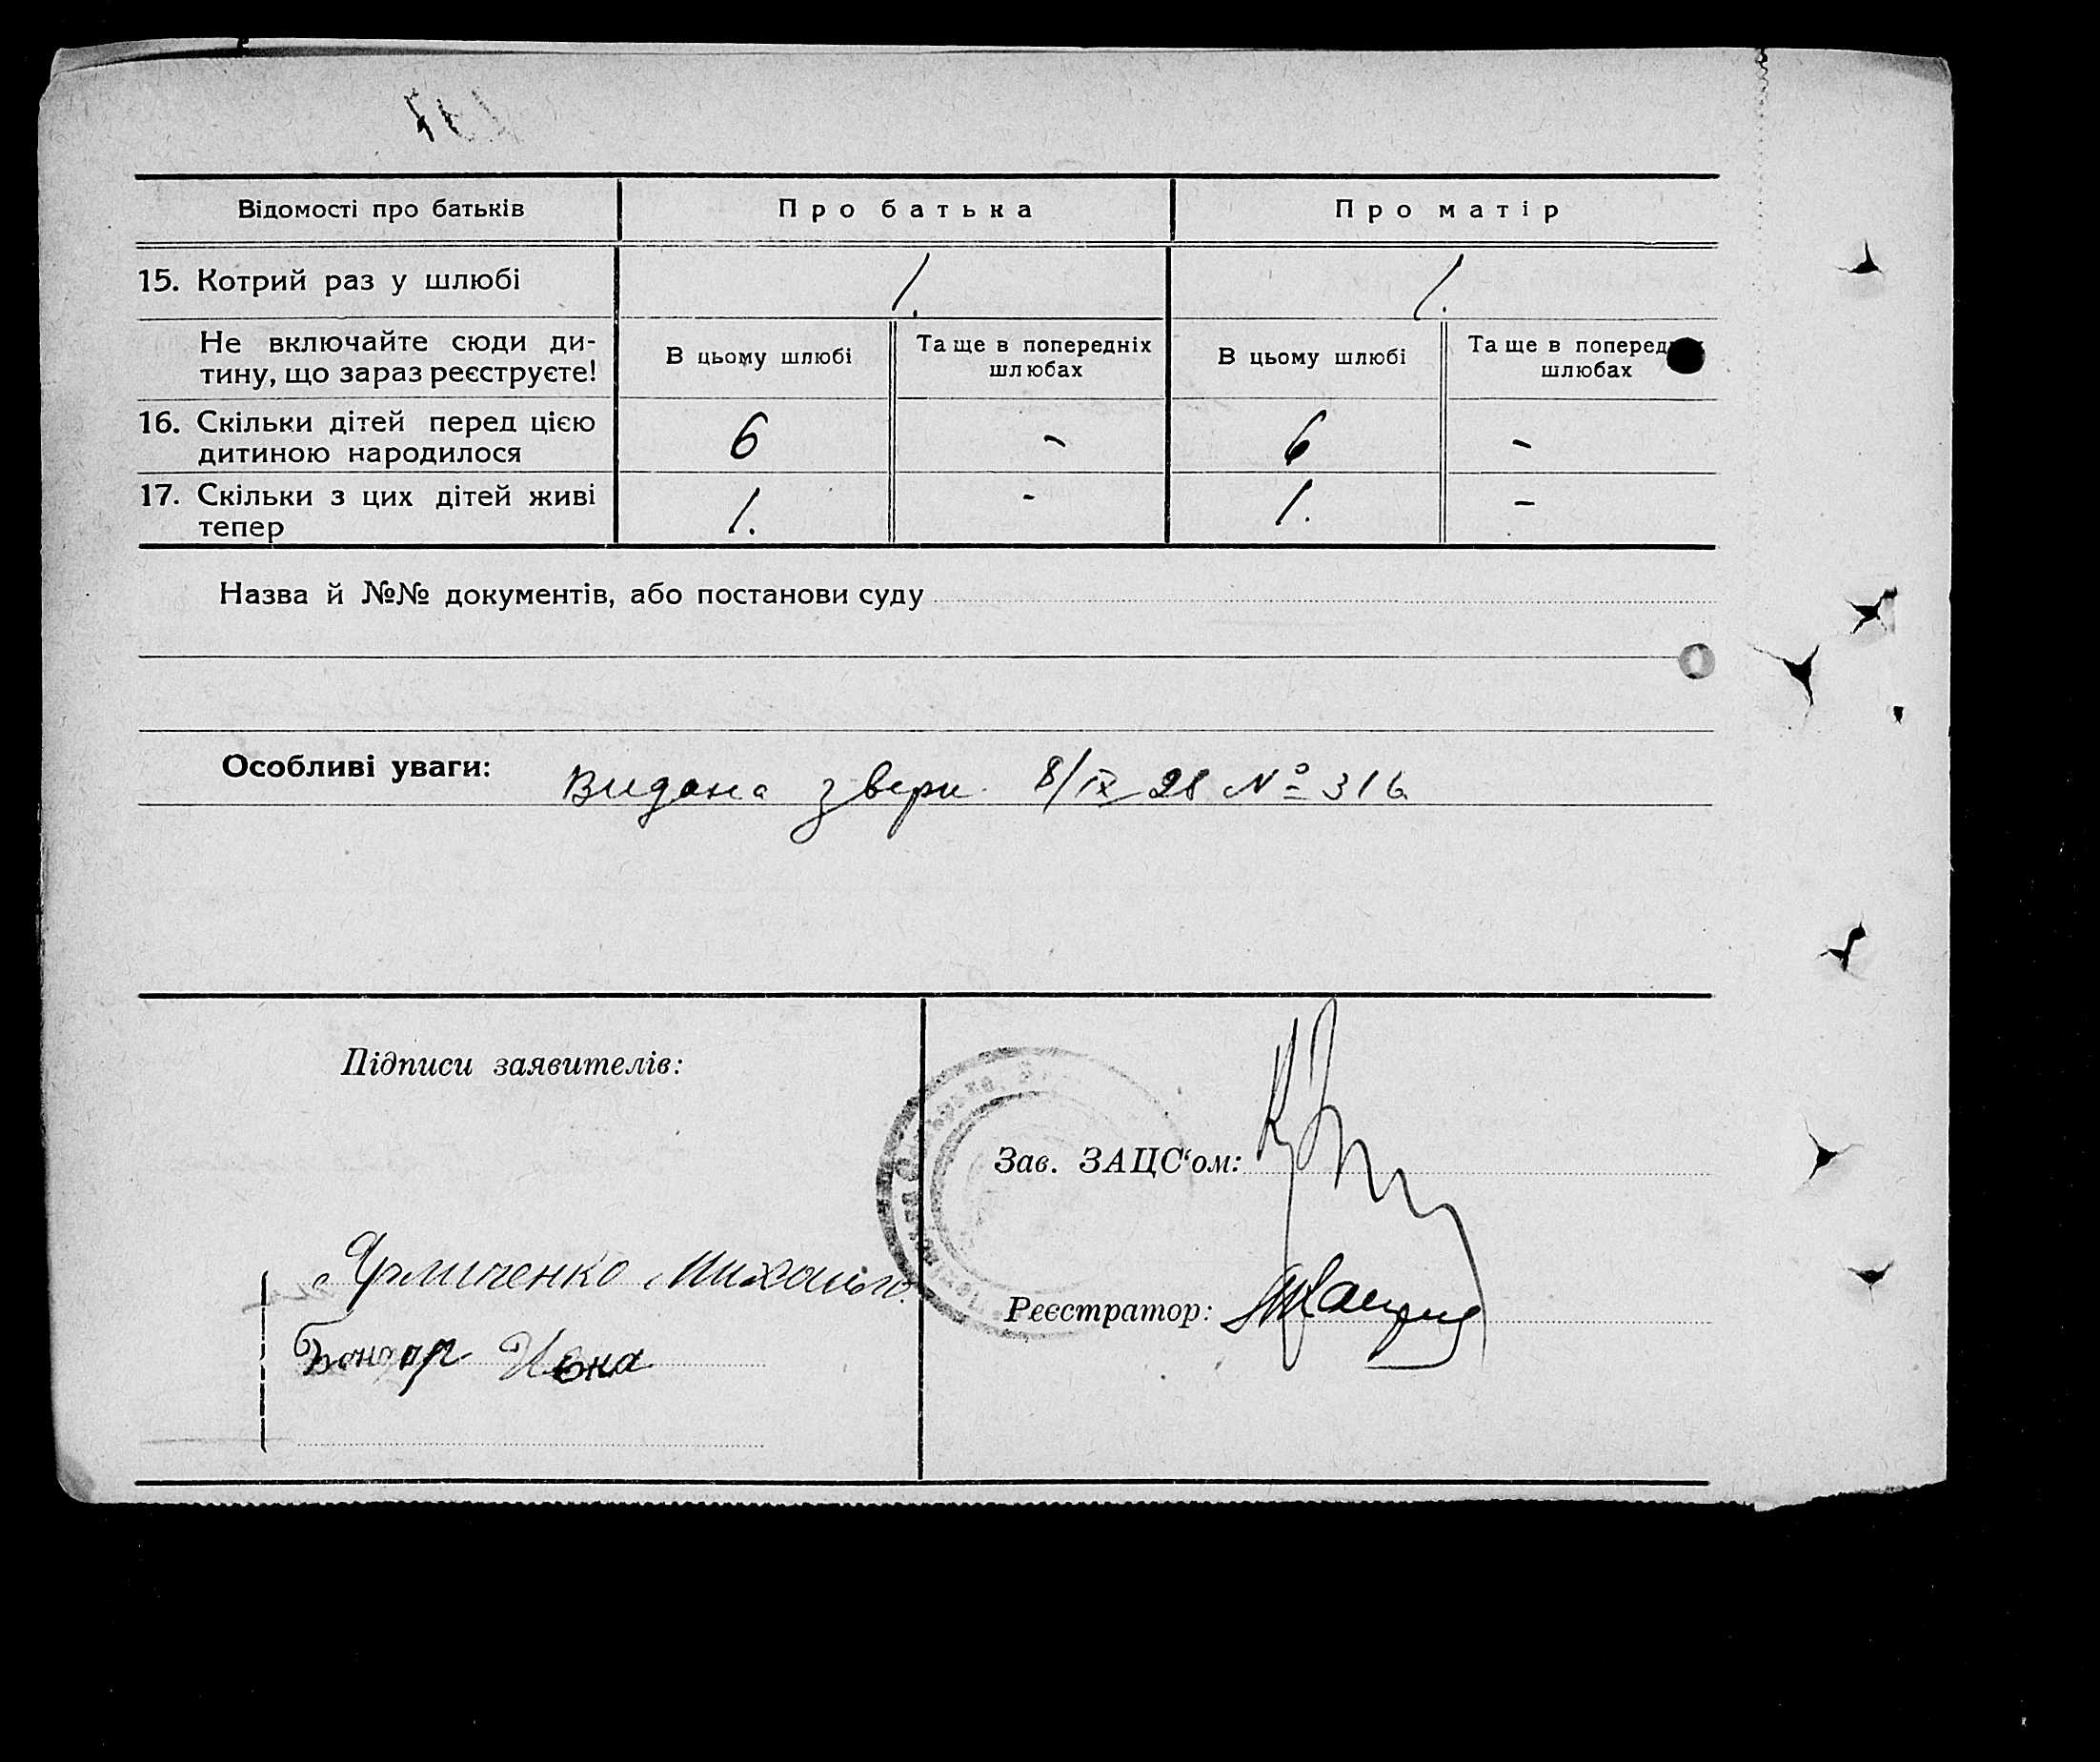 Відомості про батьків Про батька Про матір
15. Котрий раз у шлюбі 1. 1.
Не включайте сюди ди-
тину, що зараз реєструєте!
В цьому шлюбі Та ще в попередніх шлюбах В цьому шлюбі Та ще в поперед шлюбах
16. Скільки дітей перед цією
дитиною народилося 6 - 6 -
17. Скільки з цих дітей живі
тепер 1. - 1. -
Назва й №№ документів, або постанови суду
Особливі уваги: Видана 8/IX 28 № 316
Підписи заявителів:
Зав. ЗАЦС‘ом:
Михайло
Реєстратор:
Бондар